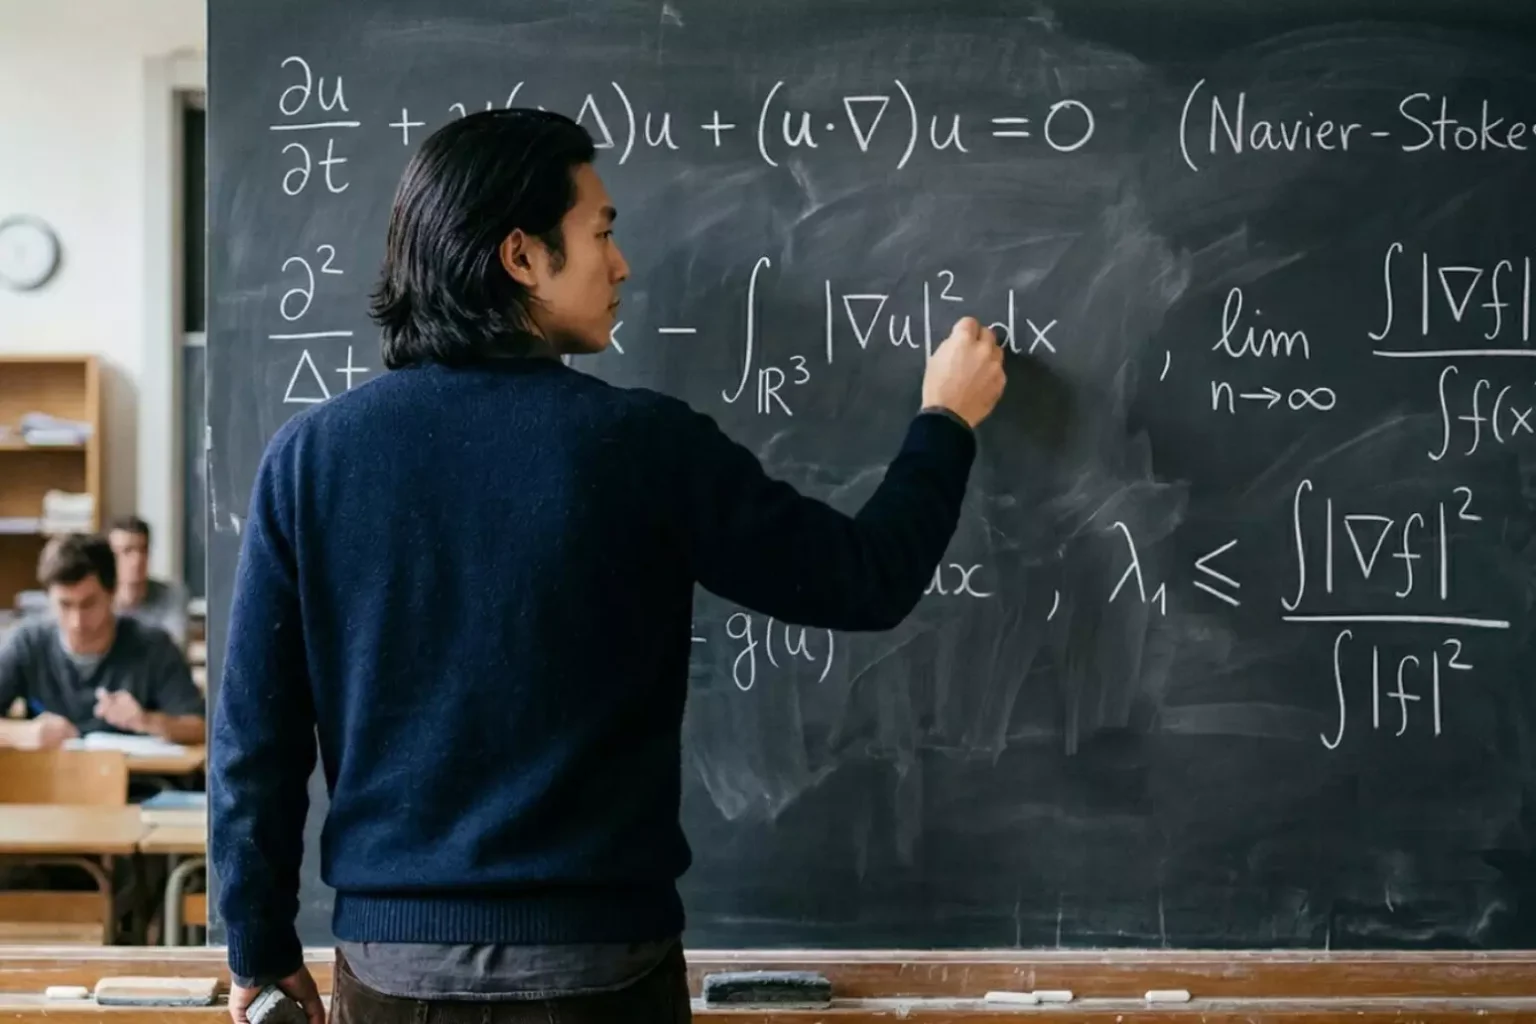 ∂u/∂t + (Δ)u + (u·∇)u = 0 (Navier-Stoke
∂²/Δt - ∫_ℝ³ |∇u|² dx , lim n→∞ ∫|∇f|/∫f(x
dx , λ₁ ≤ ∫|∇f|²/∫|f|²
- g(u)